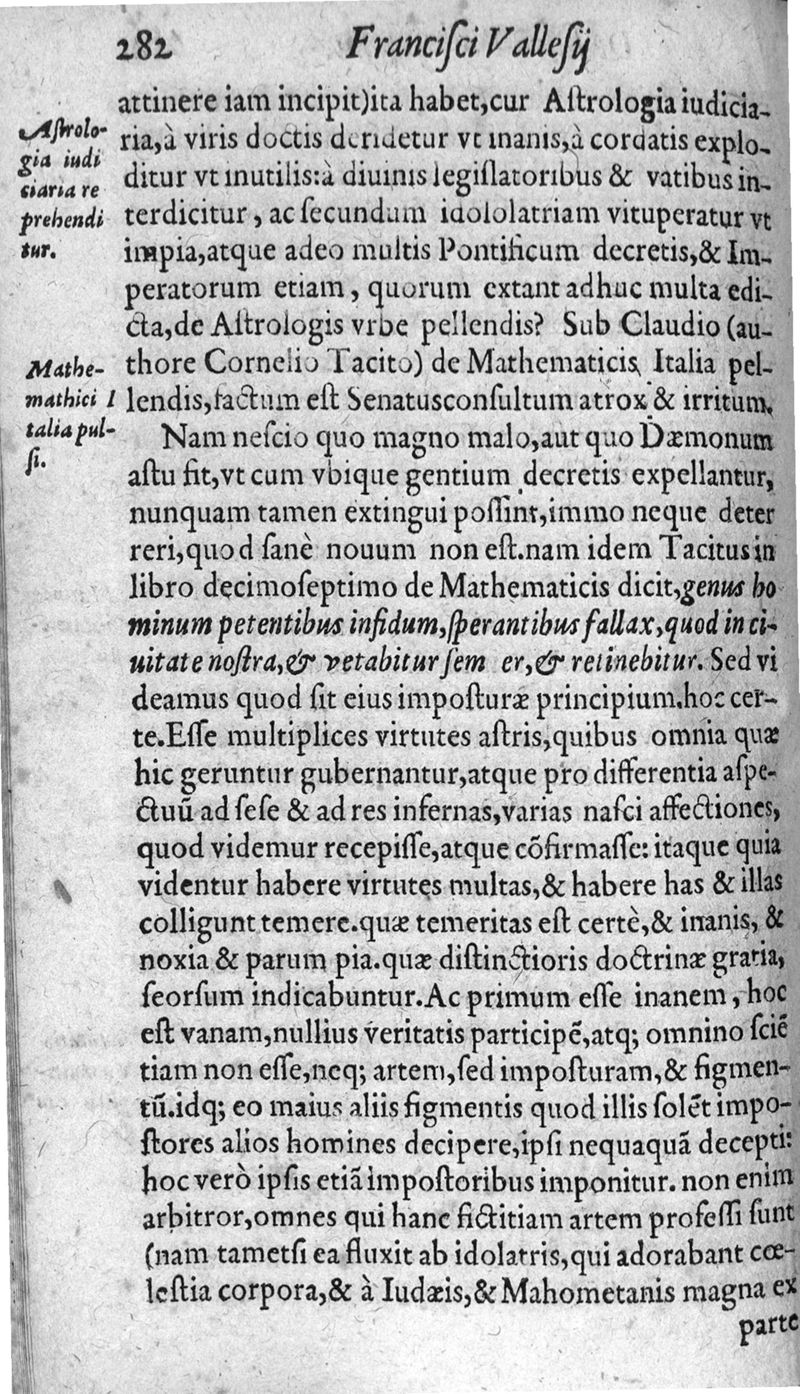 282 Franciſci Valleſij
attinere iam incipit)ita habet,cur Aſtrologia iudicia-
Aſtrolo-
gia iudi
ciaria re
prehendi
tur.
ria,à viris doctis deridetur vt inanis,à cordatis explo-
ditur vt inutilis:à diuinis legiſlatoribus & vatibus in-
terdicitur, ac ſecundum idololatriam vituperatur vt
impia,atque adeo multis Pontificum decretis,& Im-
peratorum etiam, quorum extant adhuc multa edi-
cta,de Aſtrologis vrbe pellendis? Sub Claudio (au-
Mathe-
mathici I
talia pul-
ſi.
thore Cornelio Tacito) de Mathematicis, Italia pel-
lendis,factum eſt Senatusconſultum atrox & irritum.
Nam neſcio quo magno malo,aut quo Dæmonum
aſtu fit,vt cum vbique gentium decretis expellantur,
nunquam tamen extingui poſſint,immo neque deter
reri,quod ſanè nouum non eſt.nam idem Tacitus in
libro decimoſeptimo de Mathematicis dicit,genus ho
minum petentibus infidum,ſperantibus fallax,quod in ci-
uitate noſtra,& vetabitur ſem er,& retinebitur. Sed vi
deamus quod ſit eius impoſturæ principium.hoc cer-
te.Eſſe multiplices virtutes aſtris,quibus omnia quæ
hic geruntur gubernantur,atque pro differentia aſpe-
ctuū ad ſeſe & ad res infernas,varias naſci affectiones,
quod videmur recepiſſe,atque cōfirmaſſe: itaque quia
videntur habere virtutes multas,& habere has & illas
colligunt temere.quæ temeritas eſt certè,& inanis, &
noxia & parum pia.quæ diſtinctioris doctrinæ gratia,
ſeorſum indicabuntur.Ac primum eſſe inanem, hoc
eſt vanam,nullius veritatis participē,atq; omnino ſciē
tiam non eſſe,neq; artem,ſed impoſturam,& figmen-
tū.idq; eo maius aliis figmentis quod illis ſolēt impo-
ſtores alios homines decipere,ipſi nequaquā decepti:
hoc verò ipſis etiā impoſtoribus imponitur. non enim
arbitror,omnes qui hanc fictitiam artem profeſſi ſunt
(nam tametſi ea fluxit ab idolatris,qui adorabant cœ-
leſtia corpora,& à Iudæis,& Mahometanis magna ex
parte